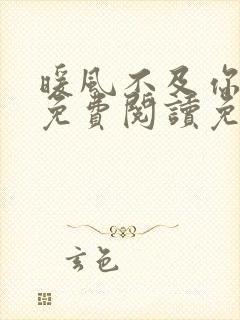 暖風不及你
免費閱讀免
玄色